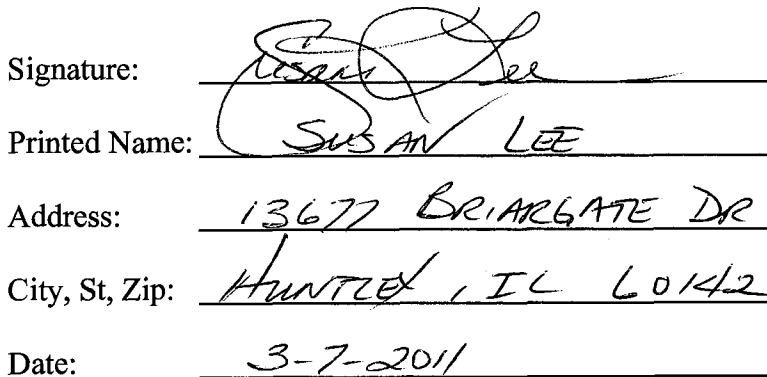 Signature: Susan Lee
Printed Name: SUSAN LEE
Address: 13677 BRIARGATE DR
City, St, Zip: HUNTLEY, IL 60142
Date: 3-7-2011